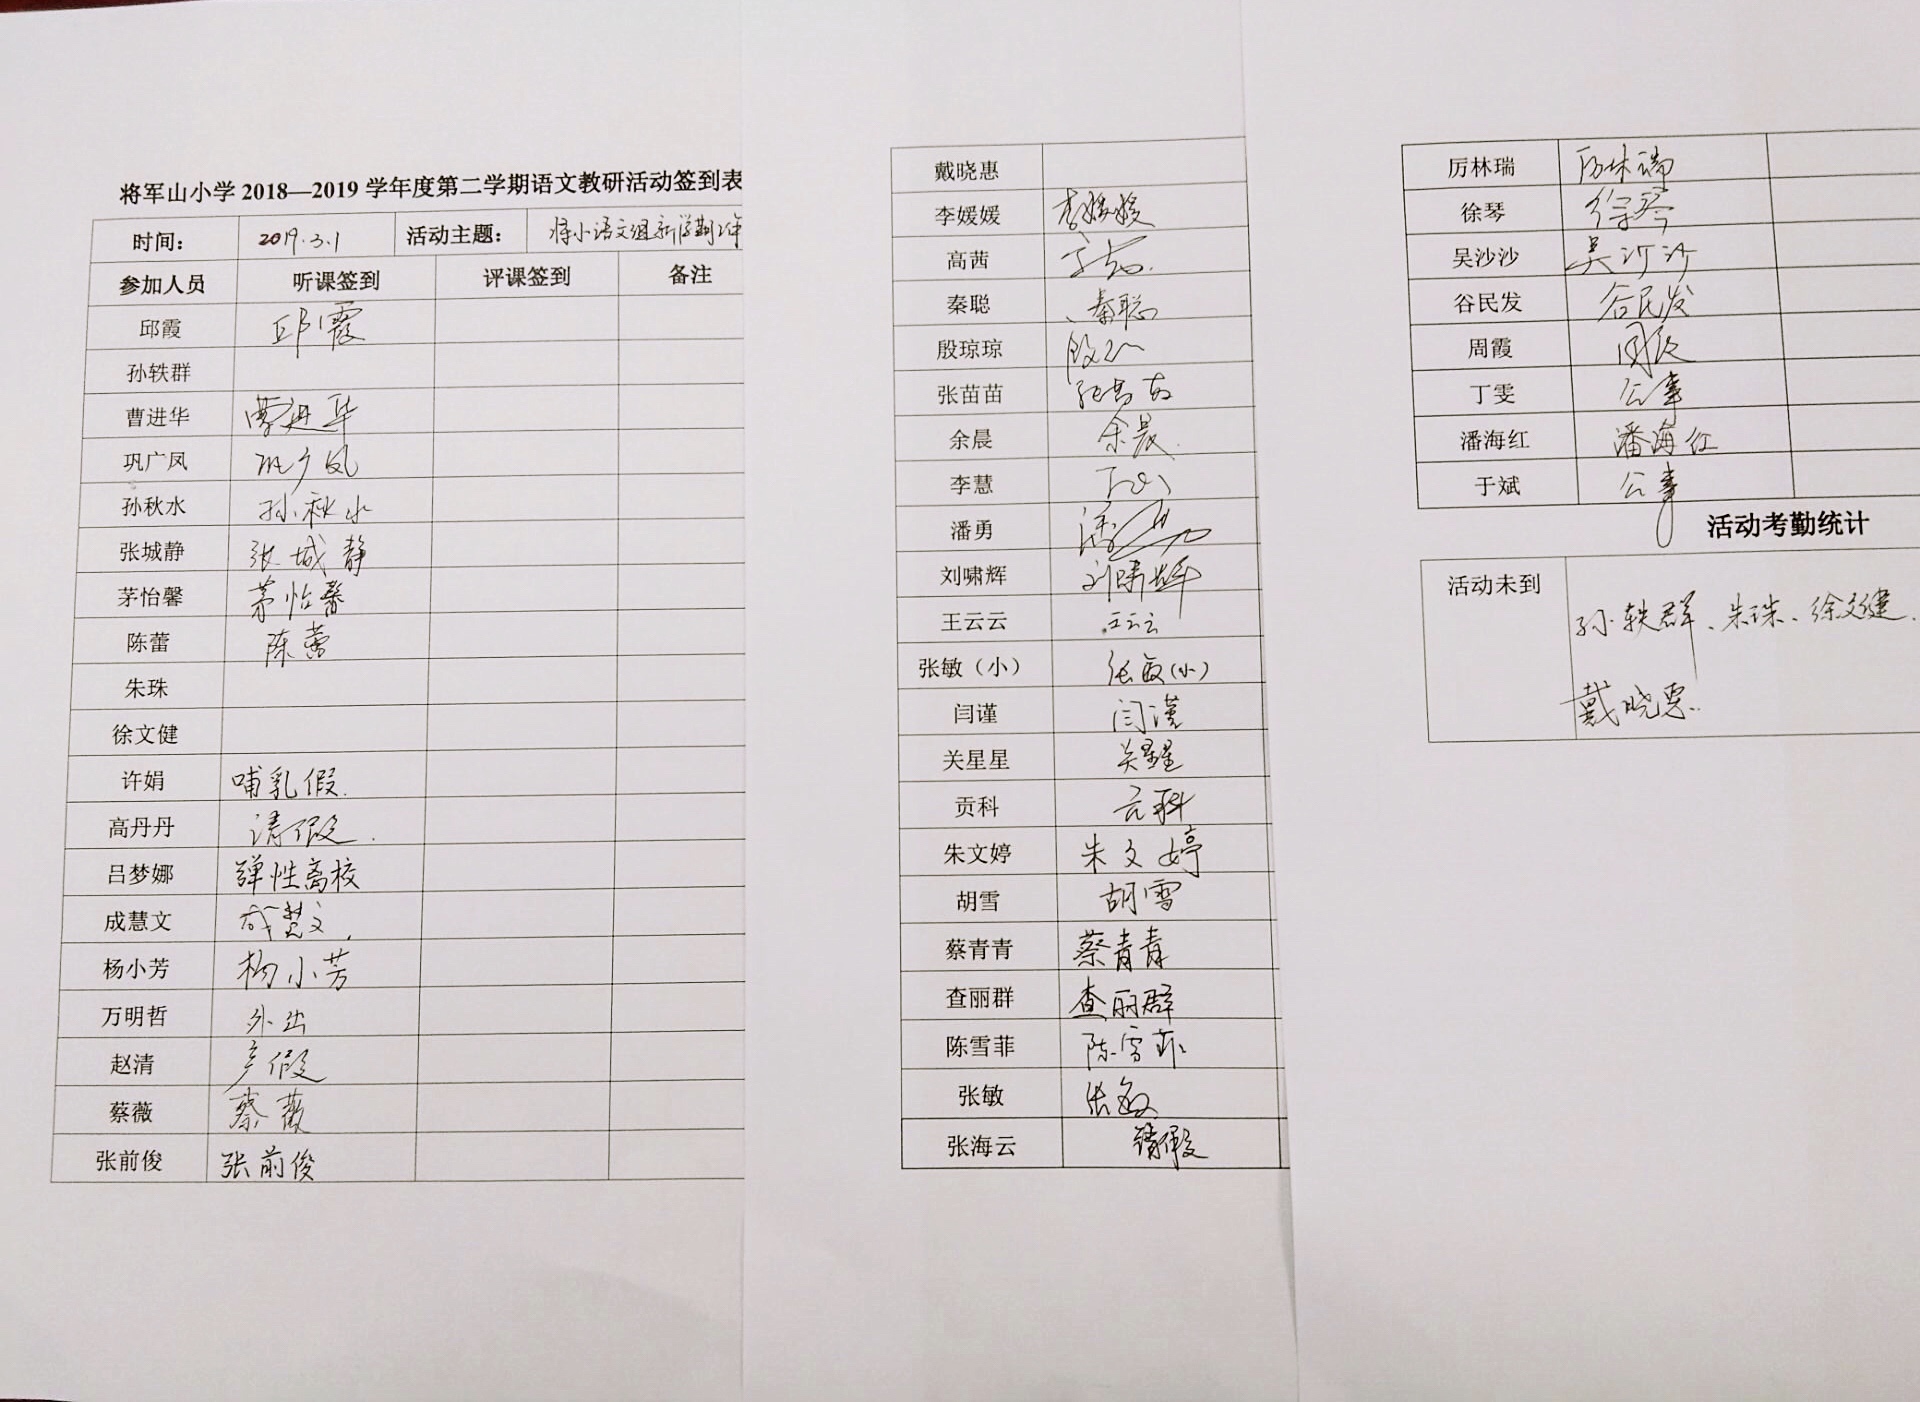 将军山小学 2018—2019 学年度第二学期语文教研活动签到表
时间: 2019.3.1 活动主题: 将小语文组新学期
参加人员 听课签到 评课签到 备注
邱霞 邱霞
孙轶群
曹进华 曹进华
巩广凤 巩广凤
孙秋水 孙秋水
张城静 张城静
茅怡馨 茅怡馨
陈蕾 陈蕾
朱珠
徐文健
许娟 哺乳假.
高丹丹 请假.
吕梦娜 弹性离校
成慧文 成慧文
杨小芳 杨小芳
万明哲 外出
赵清 产假
蔡薇 蔡薇
张前俊 张前俊
戴晓惠
李媛媛 李媛媛
高茜 高茜.
秦聪 秦聪
殷琼琼 殷
张苗苗 张苗苗
余晨 余晨.
李慧
潘勇 潘勇
刘啸辉 刘啸辉
王云云 王云云
张敏（小） 张敏(小)
闫谨 闫谨
关星星 关星星
贡科 贡科
朱文婷 朱文婷
胡雪 胡雪
蔡青青 蔡青青
查丽群 查丽群
陈雪菲 陈雪菲
张敏 张敏
张海云 请假
厉林瑞 厉林瑞
徐琴 徐琴
吴沙沙 吴沙沙
谷民发 谷民发
周霞 周霞
丁雯 公事
潘海红 潘海红
于斌 公事
活动考勤统计
活动未到 孙轶群、朱珠、徐文健.
戴晓惠.